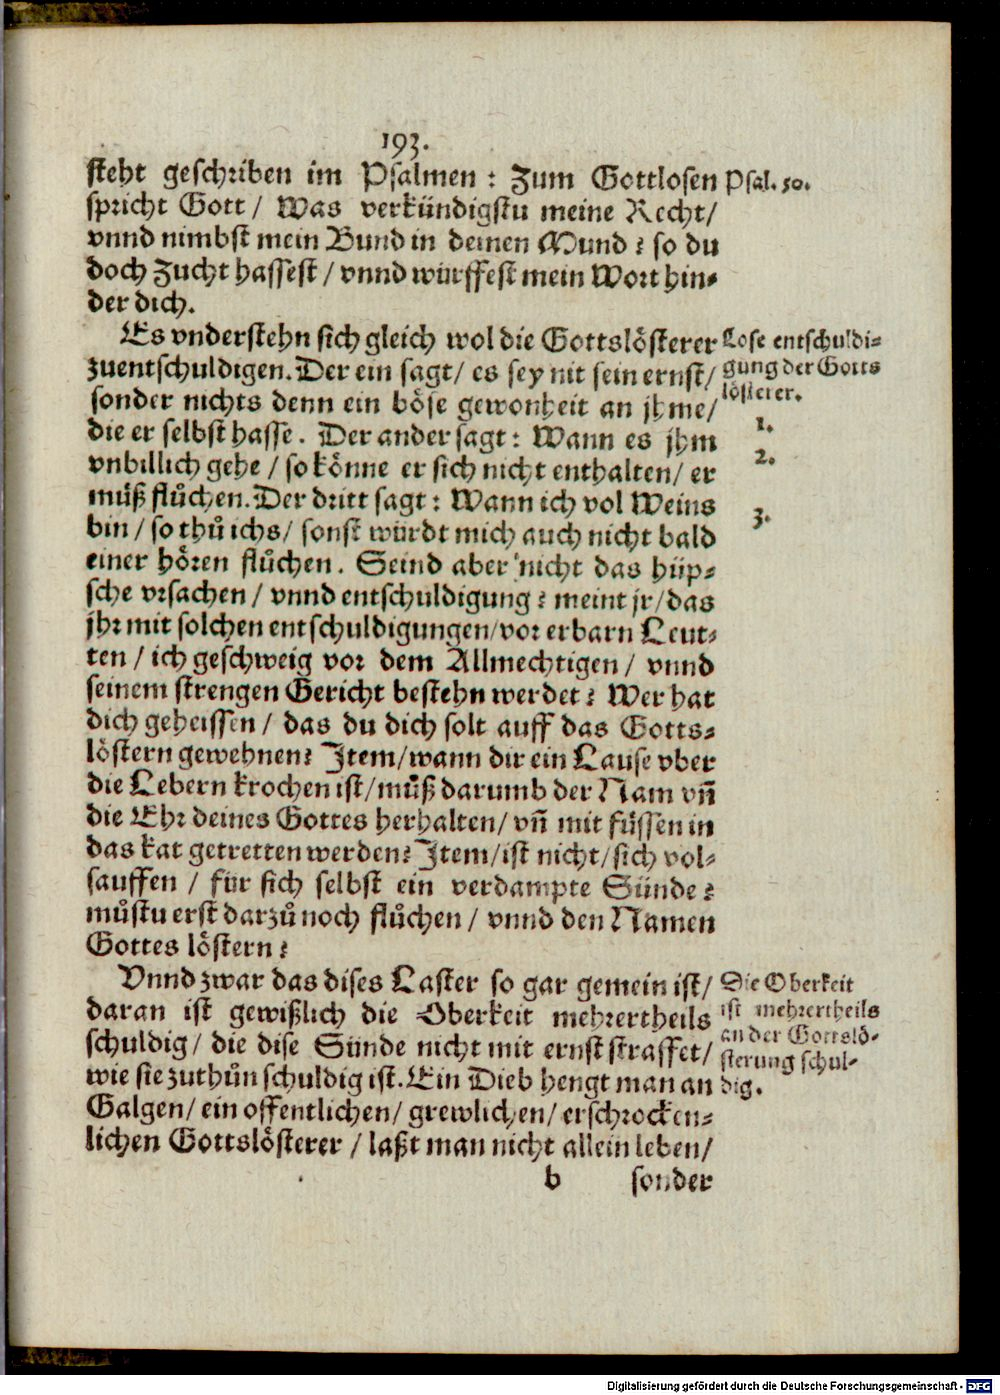 193.
steht geschriben im Psalmen : Zum Gottlosen
spricht Gott / Was verkündigstu meine Recht/
vnnd nimbst mein Bund in deinen Mund ? so du
doch Zucht hassest / vnnd würffest mein Wort hin-
der dich.
Psal. 50.
Es vnderstehn sich gleich wol die Gottslösterer
zuentschuldigen. Der ein sagt/ es sey nit sein ernst/
sonder nichts denn ein böse gewonheit an jhme/
die er selbst hasse. Der ander sagt : Wann es jhm
vnbillich gehe / so könne er sich nicht enthalten/ er
müß flůchen. Der dritt sagt : Wann ich vol Weins
bin / so thů ichs/ sonst würdt mich auch nicht bald
einer hören flůchen. Seind aber nicht das hüp-
sche vrsachen / vnnd entschuldigung ? meint jr/ das
jhr mit solchen entschuldigungen/ vor erbarn Leut-
ten / ich geschweig vor dem Allmechtigen / vnnd
seinem strengen Gericht bestehn werdet ? Wer hat
dich geheissen / das du dich solt auff das Gotts-
löstern gewehnen? Item/ wann dir ein Lause vber
die Lebern krochen ist/ můß darumb der Nam vñ
die Ehr deines Gottes herhalten/ vñ mit füssen in
das kat getretten werden? Item/ ist nicht/ sich vol-
sauffen / für sich selbst ein verdampte Sünde ?
můstu erst darzů noch flůchen / vnnd den Namen
Gottes löstern ?
Lose entschuldi-
gung der Gotts
lösterer.
1.
2.
3.
Vnnd zwar das dises Laster so gar gemein ist/
daran ist gewißlich die Oberkeit mehrertheils
schuldig/ die dise Sünde nicht mit ernst straffet/
wie sie zuthůn schuldig ist. Ein Dieb hengt man an
Galgen/ ein offentlichen/ grewlichen/ erschrocken-
lichen Gottslösterer / laßt man nicht allein leben/
Die Oberkeit
ist mehrertheils
an der Gottslö-
sterung schul-
dig.
b sonder
Digitalisierung gefördert durch die Deutsche Forschungsgemeinschaft - DFG